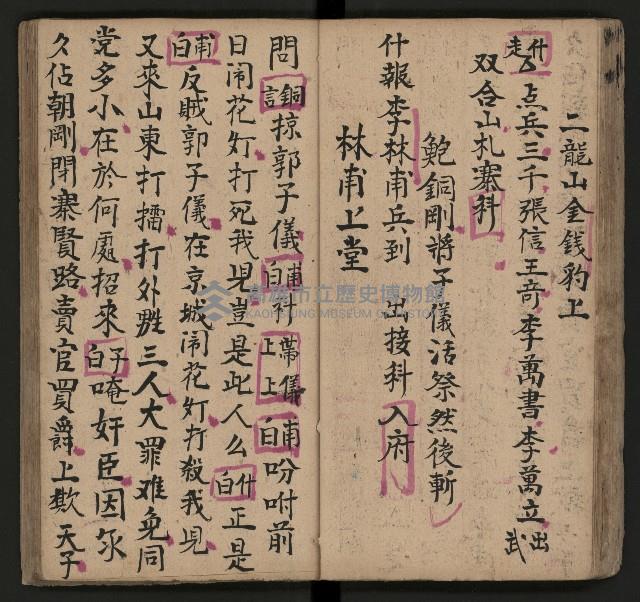 二龍山金銭豹上
什走厶点兵三千張信王奇李萬書李萬立出武
双合山札寨科
鮑銅剛將子儀活祭然後斬
什報李林甫兵到 出接科入府
林甫上堂
問銅言掠郭子儀甫白科帶儀上上甫白吩咐前
日鬧花灯打死我見豈是此人么什白正是
甫白反賊郭子儀在京城鬧花灯打殺我見
又來山東打擂打外甥三人大罪难免同
党多小在於何處招來子白唵奸臣因尔
久佔朝剛閉寨賢路賣官買爵上欺天子
高雄市立歷史博物館
KAOHSIUNG MUSEUM OF HISTORY